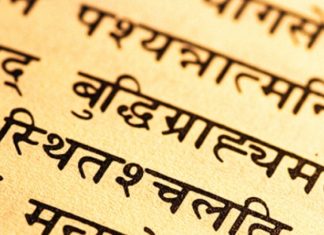 योगसे
नं पश्यन्नात्मनि
द् बुद्धिग्राह्यम
स्थितश्चलति